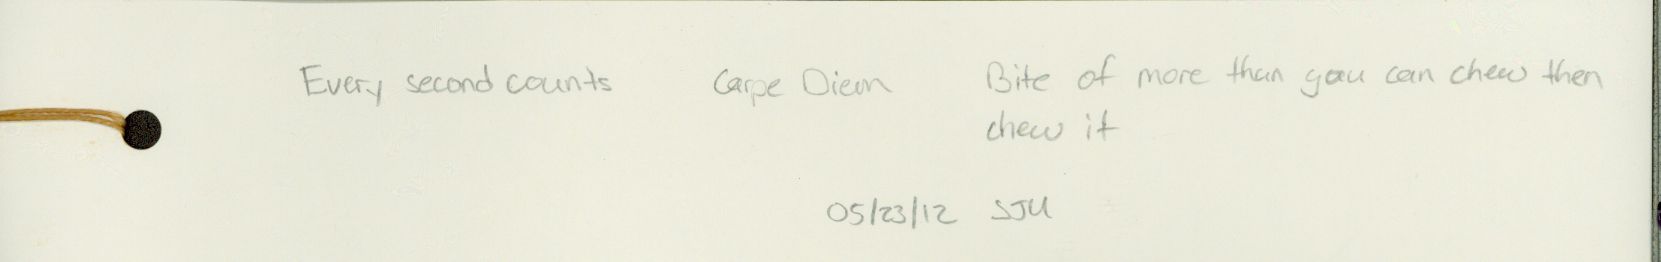 Every second counts Carpe Diem Bite of more than you can chew then
chew it
05/23/12 SJU